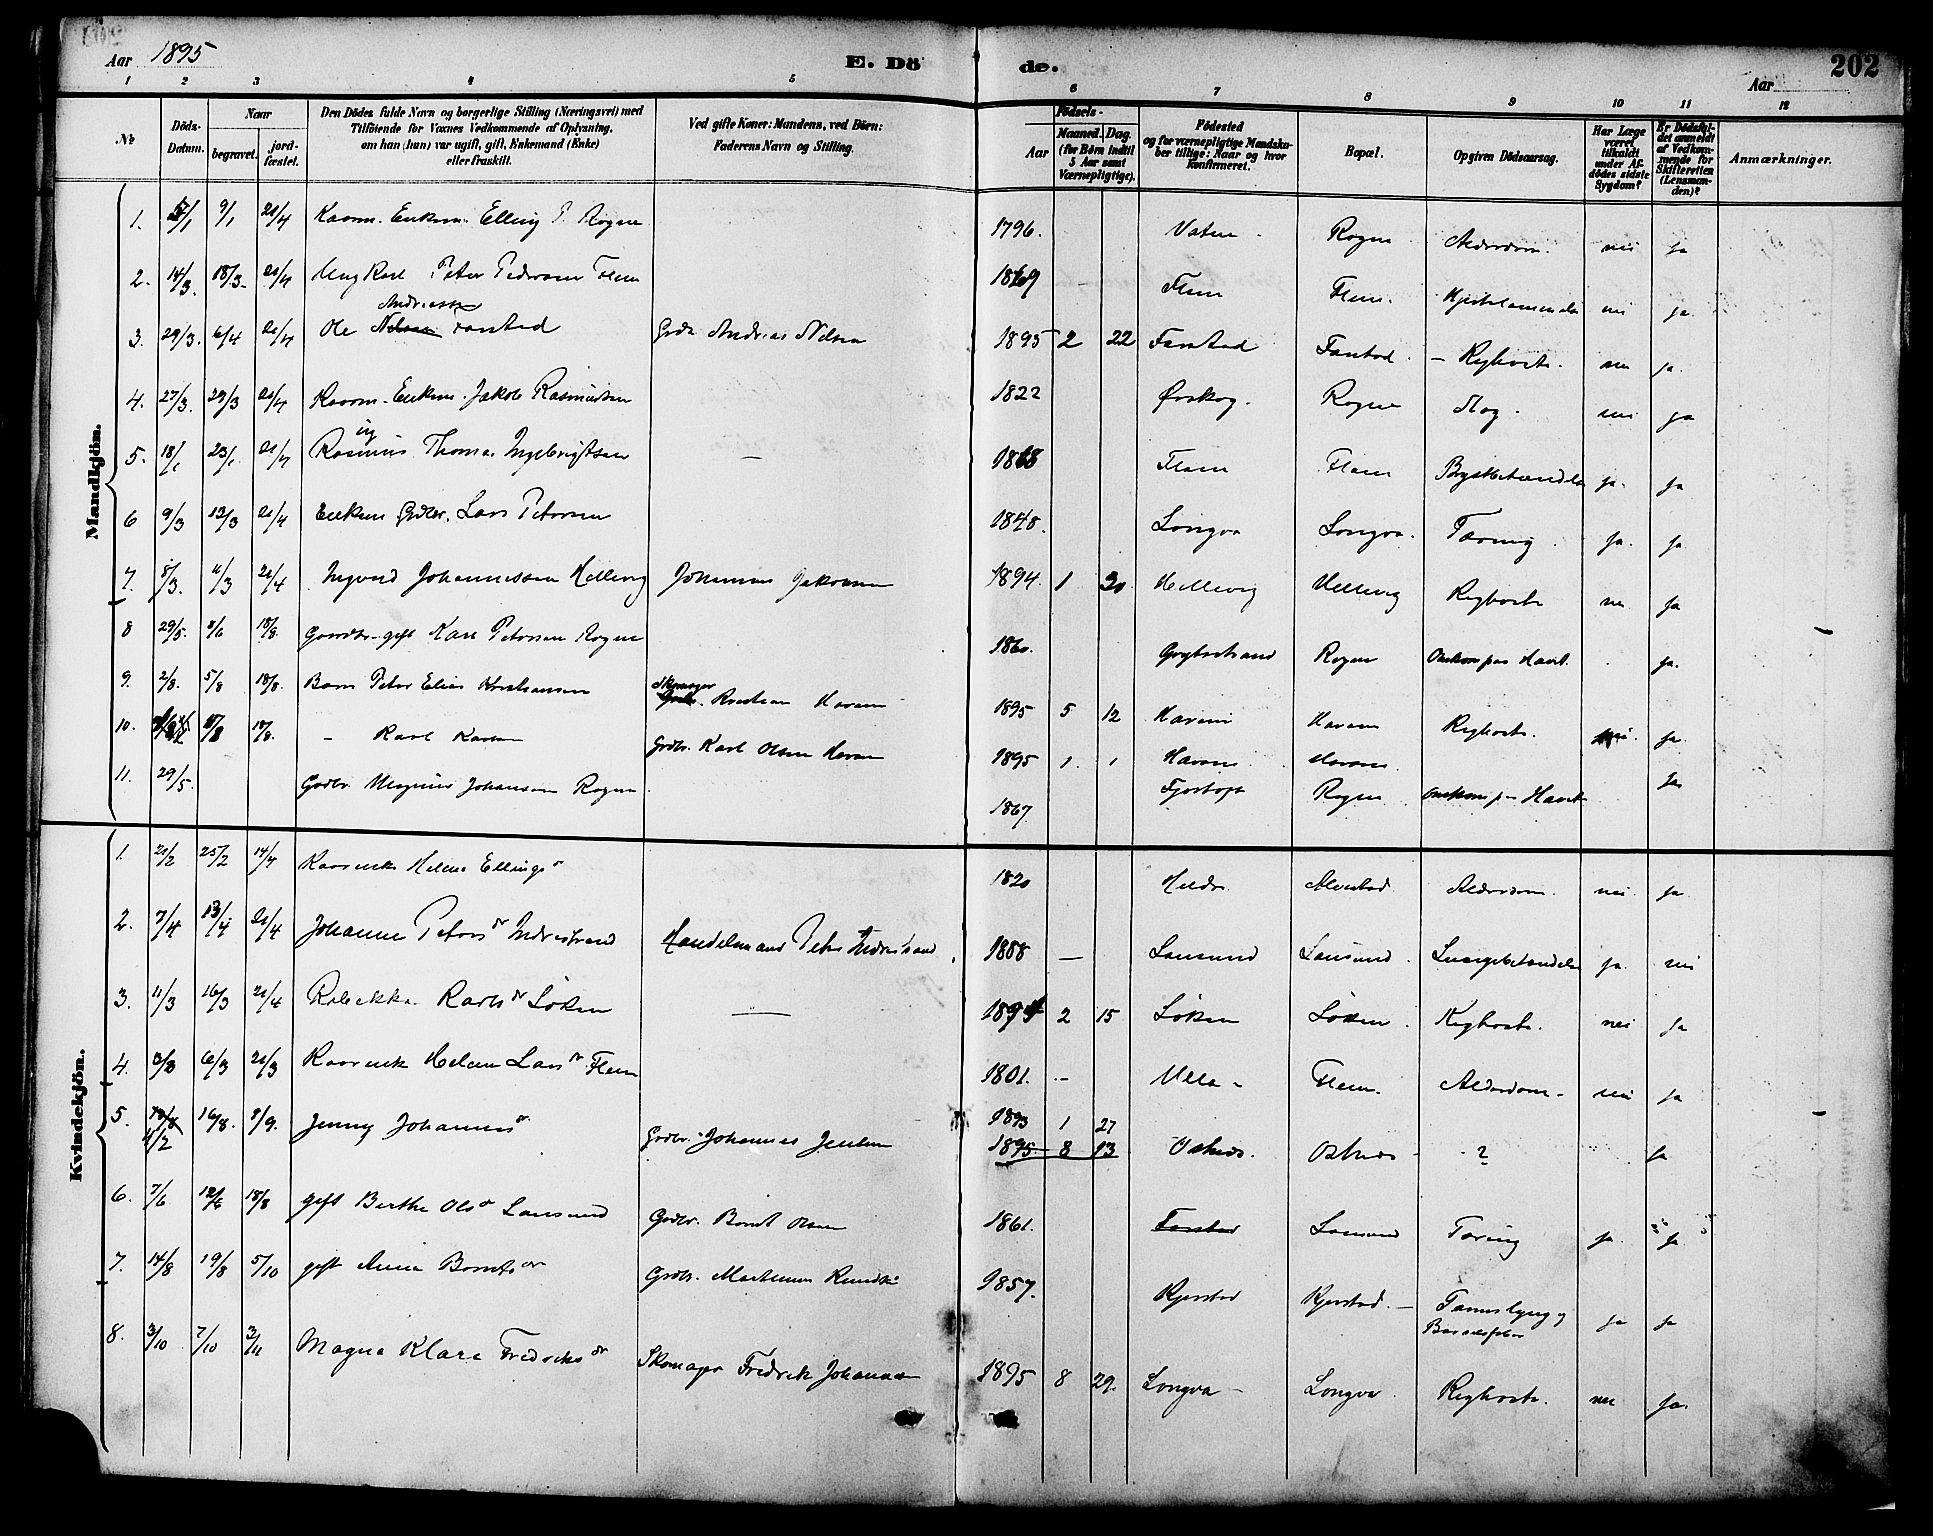 Aar 1895
E. Dö
de.
Aar
202
1 2 3 4 5 6 7 8 9 10 11 12
No
Döds-Datum.
Naar
begravet.
jord-fæstet.
Den Dödes fulde Navn og borgerlige Stilling (Næringsvei) med
Tilföiende for Voxnes Vedkommende af Oplysning,
om han (hun) var ugift, gift, Enkemand (Enke)
eller fraskilt.
Ved gifte Koner: Mandens, ved Börn:
Faderens Navn og Stilling.
Födsels-
Aar
Maaned. Dag.
(for Börn indtil
5 Aar samt
Værnepligtige).
Födested
og for værnepligtige Mandska-
ber tillige: Naar og hvor
konfirmeret.
Bopæl.
Opgiven Dödsaarsag.
Har Læge
været
tilkaldt
under Af-
dödes sidste
Sygdom?
Er Dödsfal-
det anmeldt
af Vedkom-
mende for
Skifteretten
(Lensman-
den)?
Anmærkninger.
Mandkjön.
1. 9/1 21/4 Kaarm. Enkem. Elling P. Rogne 1796. Vatne Rogne Alderdom. nei ja
2. 14/3. 18/3. 21/4 Ung Karl Peter Pedersen Flem 1869 Flem Flem. nei ja.
Andreassen
3. 29/3. 6/4 21/4 Ole Nilsen Farstad Grdb. Andreas Nilsen 1895 2 22 Farstad Farstad. Kighoste. nei ja.
4. 27/3. 29/3 21/4 Kaarm. Enkem. Jakob Rasmussen 1822 Ørskog. Rogne Slag. nei ja
ug
5. 18/1 23/1 21/4 Rasmus Thomas Ingebrigtsen — 1868 Flem Flem Brystbetændelse ja. ja
6 9/3 13/3 21/4 Enkem Grdbr. Lars Petersen 1848. Longva Longva. Tæring. ja. ja
7. 8/3. 11/3 21/4 Ingvard Johannessen Hellevig Johannes Jakobsen 1894. 1 20. Hellevig Hellevig Kighoste nei ja
8 29/5. 8/6 18/8. Gaardbr. gift Karl Petersen Rogne 1860. Grytestrand Rogne Omkom paa Havet. ja.
9. 2/8. 5/8 18/8. Barn Peter Elias Kristiansen Skomager Kristian Haram 1895 5 12 Haram Haram Kighoste. nei. ja.
10. 18/8. – Karl Karlsen Grdbr. Karl Olsen Haram 1895 1. 1 Haram Haram. ja
11. 29/5. Grdbr. Magnus Johansen Rogne 1867 Fjørtoft Rogne Omkom paa Havet
Kvindekjön.
1. 21/2 25/2 14/4 Kaarenke Helene Ellingsdr 1820 Hildre Alvestad Alderdom. nei ja.
2. 7/4 13/4 21/4 Johanne Petersdr Indrestrand Handelsmand Peter Indrestrand 1888 — Lausund Lausund. Lungebetændelse ja. nei
3. 11/3 16/3 21/4 Rebekka Karlsdr Løken — 1894 2 15 Løken Løken. Kighoste. nei ja
4. 3/3 6/3 21/3 Kaarenk Helene Larsdr Flem 1801. – Ulla Flem. Alderdom. nei ja
5. 16/8. 8/9. Jenny Johannesdr Grdbr. Johannes Jentsen 1893 1 27
11/2 1895. 8 13 Østnes. Østnes ? ja
6. 7/6 12/6 18/8 gift Berthe Olsdr Lausund Grdbr. Bernt Olsen 1861. Farstad Lausund Tæring ja. ja
7. 14/8 19/8 5/10 gift Anna Berntsdr Grdbr. Martinus 1857. Kjerstad Kjerstad. ja ja
8. 3/10 7/10 3/11 Magna Klara Fredriksdr Skomager Fredrik Johannsen 1895 8 29. Longva Longva. Kighoste. nei ja.